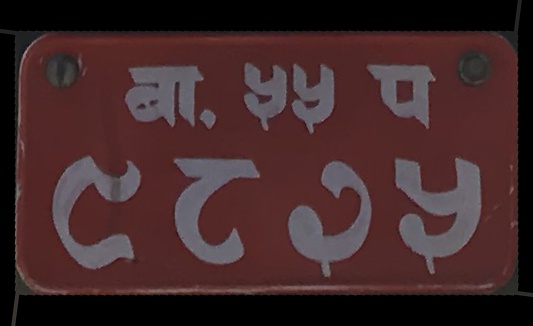 बा. ५५ प
९८७५